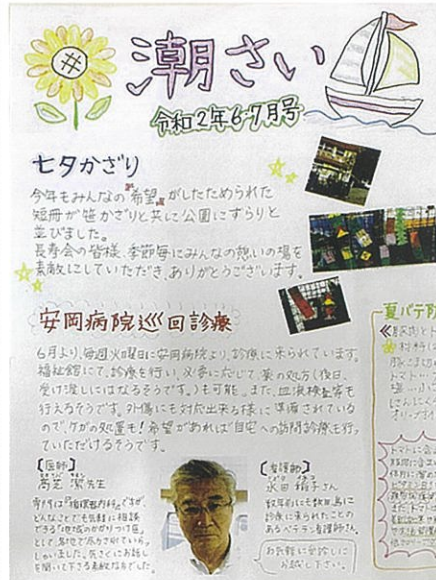 #
潮さい
令和2年6・7月号
七夕かざり
今年もみんなの『希望』がしたためられた
短冊が笹かざりと共に公園にずらりと
並びました。
長寿会の皆様、季節毎にみんなの憩いの場を
素敵にしていただき、ありがとうございます。
安岡病院巡回診療
6月より、毎週火曜日に安岡病院より、診療に来られています。
福祉館にて、診療を行い、必要に応じて薬の処方(後日、
受け渡しにはなるそうです。)も可能。また、血液検査等も
行えるそうです。外傷にも対応出来る様に準備されている
ので、ケガの処置も!希望があれば自宅への訪問診療も行っ
ていただけるそうです。
【医師】
先生
専門は『循環器内科』ですが、
どんなことでも気軽に相談
できる『地域のかかりつけ医』
として、各地で尽力されていらっ
しゃいました。気さくにお話し
を聞いて下さる素敵な方でした。
【看護師】
永田 さん
数年前にも
に診療に来られたことの
あるベテラン看護師さん。
お気軽に受診しに
お越し下さい。
夏バテ防
豚肉と
材料
豚こま切
トマト
塩
にんにく
オリーブオイ
トマトに含